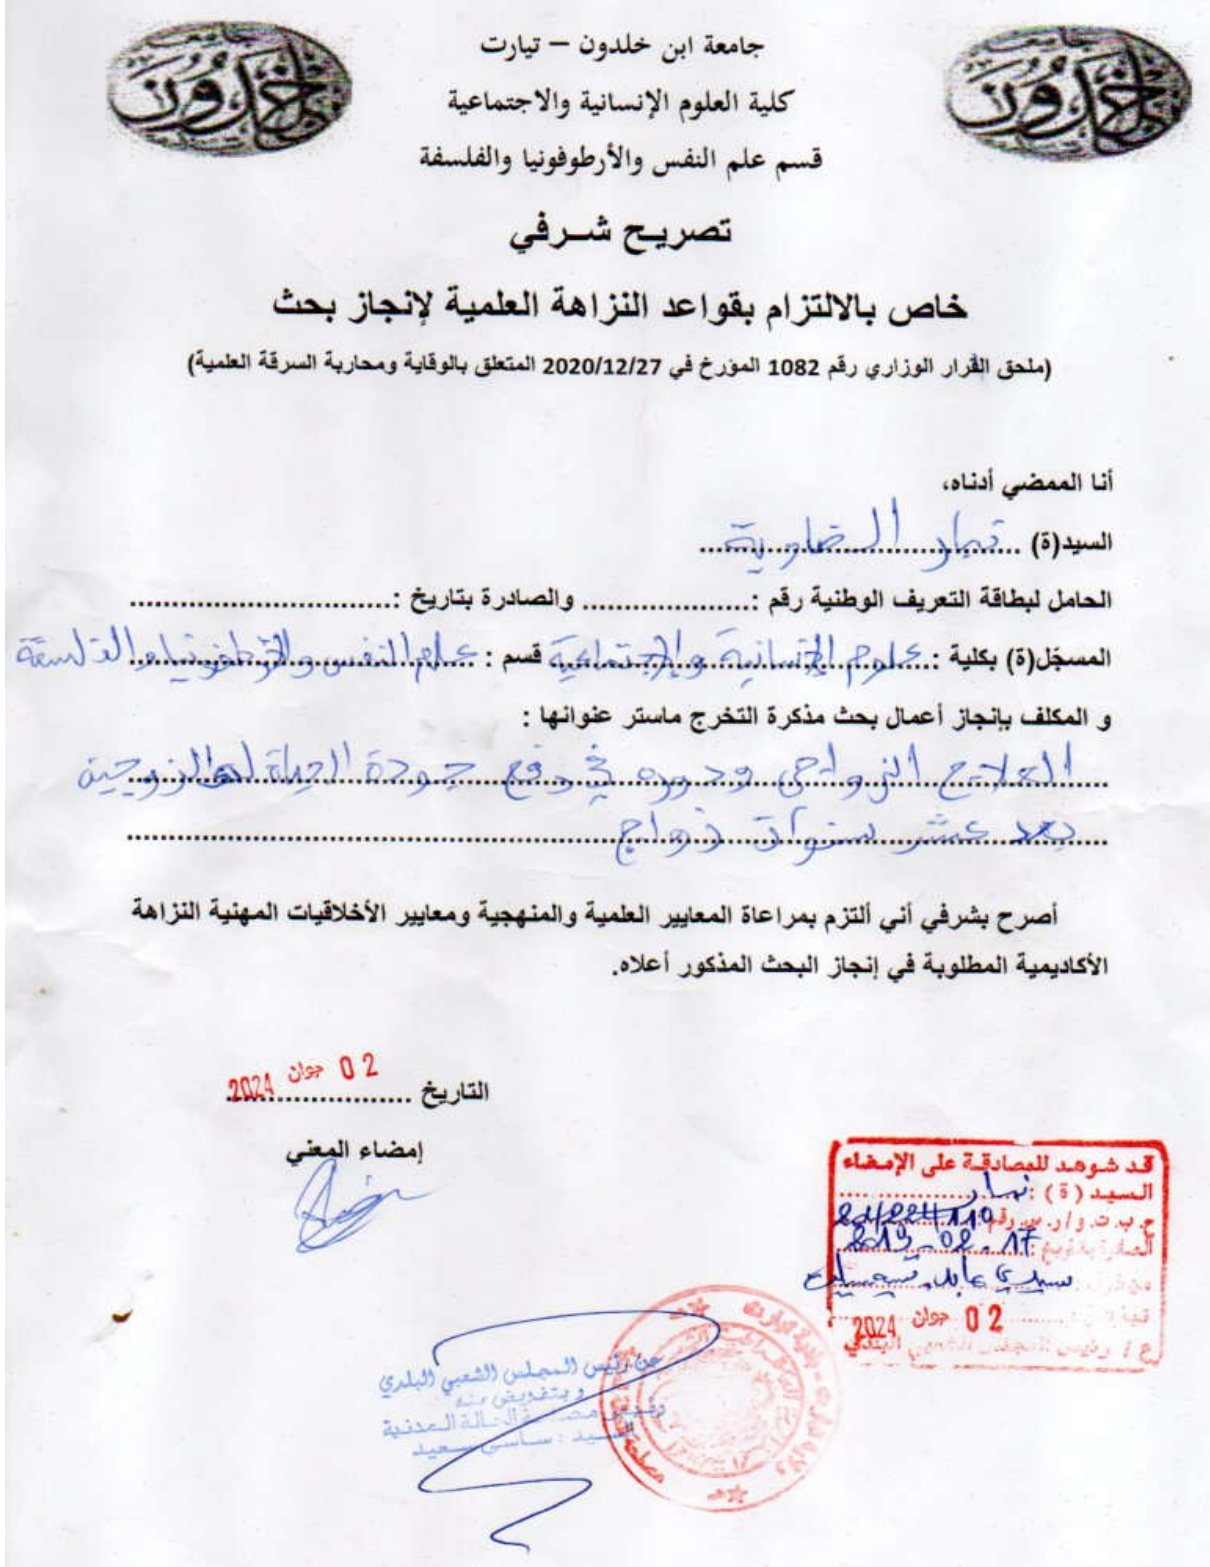 جامعة
خلدون
جامعة
خلدون
جامعة ابن خلدون – تيارت
كلية العلوم الإنسانية والاجتماعية
قسم علم النفس والأرطوفونيا والفلسفة
تصريح شرفي
خاص بالالتزام بقواعد النزاهة العلمية لإنجاز بحث
(ملحق القرار الوزاري رقم 1082 المؤرخ في 2020/12/27 المتعلق بالوقاية ومحاربة السرقة العلمية)
أنا الممضي أدناه،
السيد(ة) ... تمار الضاوية ...
الحامل لبطاقة التعريف الوطنية رقم :.................... والصادرة بتاريخ :...............................
المسجّل(ة) بكلية : علوم الإنسانية والإجتماعية قسم : علم النفس والأرطفونيا والفلسفة
و المكلف بإنجاز أعمال بحث مذكرة التخرج ماستر عنوانها :
العلاج الزواجي ودوره في رفع جودة الحياة لدى الزوجين
بعد عشر سنوات زواج
أصرح بشرفي أني ألتزم بمراعاة المعايير العلمية والمنهجية ومعايير الأخلاقيات المهنية النزاهة
الأكاديمية المطلوبة في إنجاز البحث المذكور أعلاه.
التاريخ .................... 02 جوان 2024
إمضاء المعني
قد شوهد للمصادقة على الإمضاء
السيد (ة) : تمار
ح. ب. ت. و / ر. س. رقم
الصادرة بتاريخ : 17 - 02 -
02 جوان 2024
ع / رئيس المجلس الشعبي البلدي
عن رئيس المجلس الشعبي البلدي
وبتفويض منه
الحالة المدنية
السيد : ساسي سعيد